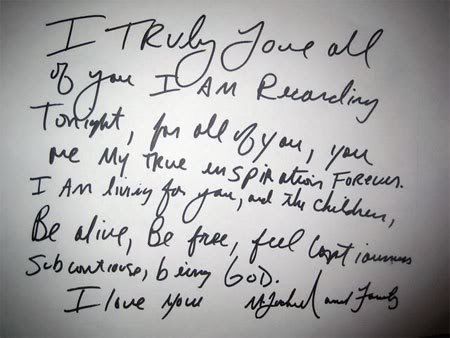 I TRULY Love all
of you I AM Recording
Tonight, for all of you, you
are My true inSPiRATiON Forever.
I AM living for you, and The children,
Be alive, Be free, feel
being GOD.
I love you and Family